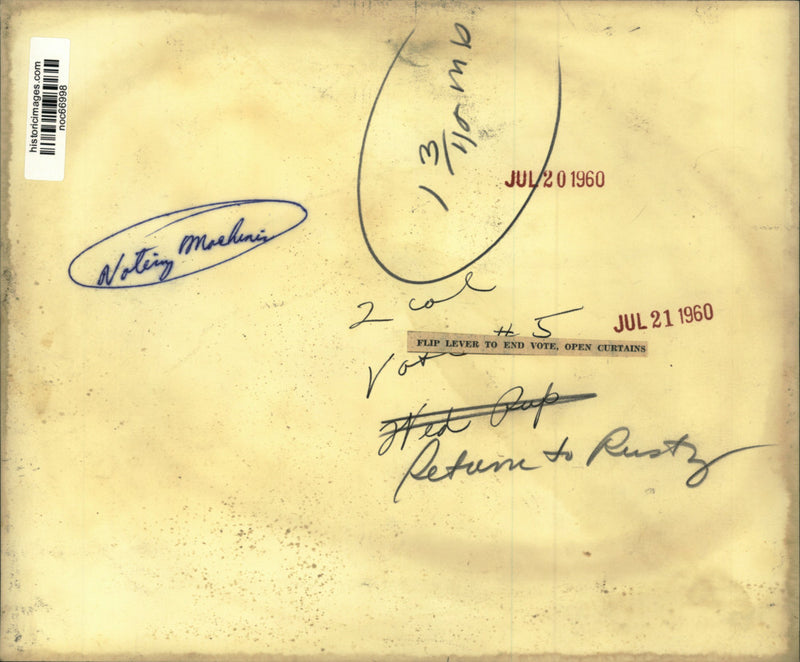 historicimages.com
noc66998
13/16 m a
JUL 20 1960
Voting Machines
2 col
JUL 21 1960
# 5
FLIP LEVER TO END VOTE, OPEN CURTAINS
Vote
Wed Pup
Return to Rusty